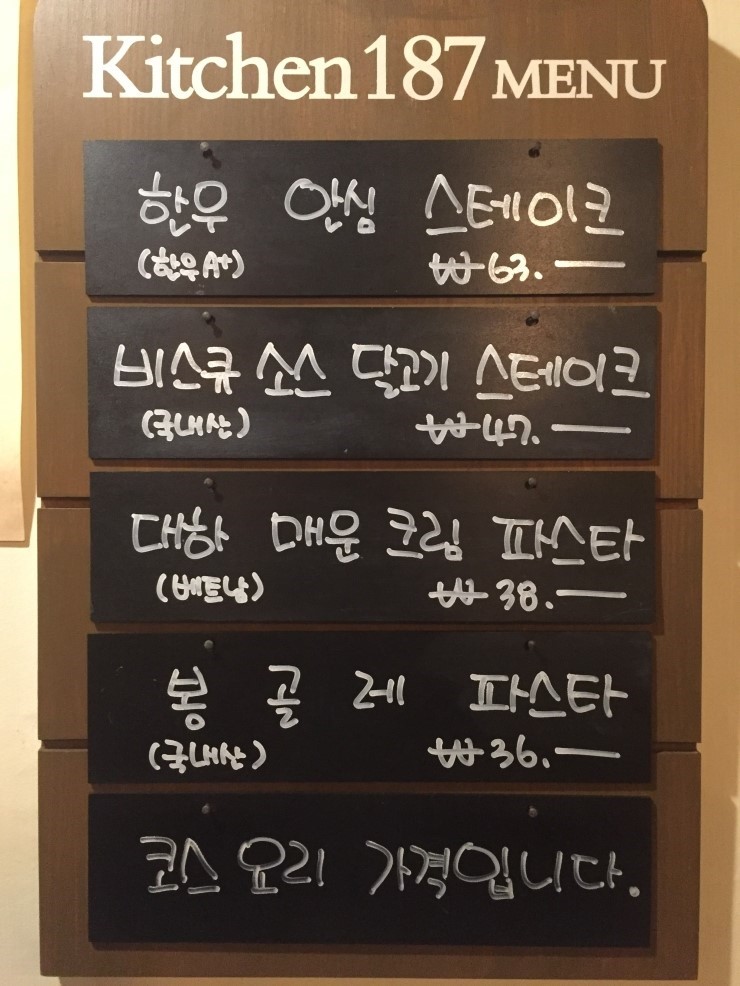 Kitchen 187 MENU
한우 안심 스테이크
(한우A+) ₩63.—
비스큐 소스 닭고기 스테이크
(국내산) ₩47.—
대하 매운 크림 파스타
(베트남) ₩38.—
봉골레 파스타
(국내산) ₩36.—
코스 요리 가격입니다.